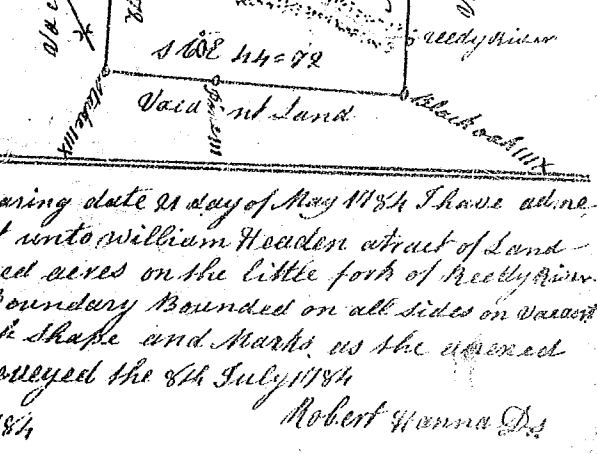 Vac
Reedy River
S 10 E 44=72
Vacant Land
Stake IIIX
Pine III
Black oak IIIX
aring date 21 day of May 1784 I have adme
t unto William Headen a tract of Land
ed acres on the little fork of Reedy River
Boundary Bounded on all sides on vacant
h Shape and Marks as the anexed
veyed the 8th July 1784
Robert Hanna Ds
84